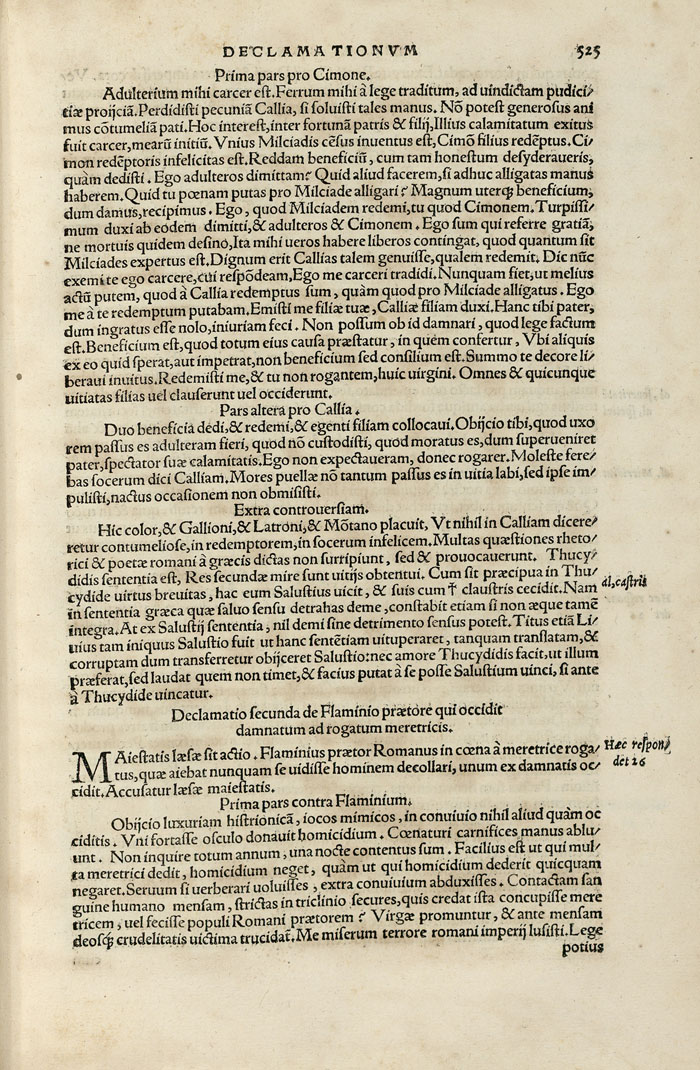 DECLAMATIONVM 525
Prima pars pro Cimone.
Adulterium mihi carcer est. Ferrum mihi à lege traditum, ad uindictam pudici/
tiæ proijciã. Perdidisti pecuniã Callia, si soluisti tales manus. Nõ potest generosus ani
mus cõtumeliã pati. Hoc interest, inter fortunã patris & filij, Illius calamitatum exitus
fuit carcer, mearũ initiũ. Vnius Milciadis cẽsus inuentus est, Cimõ filius redẽptus. Ci/
mon redẽptoris infelicitas est. Reddam beneficiũ, cum tam honestum desyderaueris,
quàm dedisti. Ego adulteros dimittam? Quid aliud facerem, si adhuc alligatas manus
haberem. Quid tu pœnam putas pro Milciade alligari? Magnum uterq; beneficium,
dum damus, recipimus. Ego, quod Milciadem redemi, tu quod Cimonem. Turpissi/
mum duxi ab eodem dimitti, & adulteros & Cimonem. Ego sum qui referre gratiã,
ne mortuis quidem desino, Ita mihi ueros habere liberos contingat, quod quantum sit
Milciades expertus est. Dignum erit Callias talem genuisse, qualem redemit. Dic nũc
exemi te ego carcere, cui respõdeam, Ego me carceri tradidi. Nunquam fiet, ut melius
actũ putem, quod à Callia redemptus sum, quàm quod pro Milciade alligatus. Ego
me à te redemptum putabam. Emisti me filiæ tuæ, Calliæ filiam duxi. Hanc tibi pater,
dum ingratus esse nolo, iniuriam feci. Non possum ob id damnari, quod lege factum
est. Beneficium est, quod totum eius causa præstatur, in quem confertur, Vbi aliquis
ex eo quid sperat, aut impetrat, non beneficium sed consilium est. Summo te decore li/
beraui inuitus. Redemisti me, & tu non rogantem, huic uirgini. Omnes & quicunque
uitiatas filias uel clauserunt uel occiderunt.
Pars altera pro Callia.
Duo beneficia dedi, & redemi, & egenti filiam collocaui. Obijcio tibi, quod uxo
rem passus es adulteram fieri, quod nõ custodisti, quod moratus es, dum superueniret
pater, spectator suæ calamitatis. Ego non expectaueram, donec rogarer. Moleste fere/
bas socerum dici Calliam. Mores puellæ nõ tantum passus es in uitia labi, sed ipse im/
pulisti, nactus occasionem non obmisisti.
Extra controuersiam.
Hic color, & Gallioni, & Latroni, & Mõtano placuit, Vt nihil in Calliam dicere/
retur contumeliose, in redemptorem, in socerum infelicem. Multas quæstiones rheto/
rici & poetæ romani à græcis dictas non surripiunt, sed & prouocauerunt. Thucy/
didis sententia est, Res secundæ mire sunt uitijs obtentui. Cum sit præcipua in Thu/
cydide uirtus breuitas, hac eum Salustius uicit, & suis cum † claustris cecidit. Nam
al, castris
in sententia græca quæ saluo sensu detrahas deme, constabit etiam si non æque tamẽ
integra. At ex Salustij sententia, nil demi sine detrimento sensus potest. Titus etiã Li/
uius tam iniquus Salustio fuit ut hanc sentẽtiam uituperaret, tanquam translatam, &
corruptam dum transferretur obijceret Salustio: nec amore Thucydidis facit, ut illum
præferat, sed laudat quem non timet, & facius putat à se posse Salustium uinci, si ante
à Thucydide uincatur.
Declamatio secunda de Flaminio prætore qui occidit
damnatum ad rogatum meretricis.
MAiestatis læsæ sit actio. Flaminius prætor Romanus in cœna à meretrice roga/
Hæc respon/
tus, quæ aiebat nunquam se uidisse hominem decollari, unum ex damnatis oc/
det 26
cidit. Accusatur læsæ maiestatis.
Prima pars contra Flaminium.
Obijcio luxuriam histrionicã, iocos mimicos, in conuiuio nihil aliud quàm oc
ciditis. Vni fortasse osculo donauit homicidium. Cœnaturi carnifices manus ablu/
unt. Non inquire totum annum, una nocte contentus sum. Facilius est ut qui mul/
ta meretrici dedit, homicidium neget, quàm ut qui homicidium dederit quicquam
negaret. Seruum si uerberari uoluisses, extra conuiuium abduxisses. Contactam san
guine humano mensam, strictas in triclinio secures, quis credat ista concupisse mere
tricem, uel fecisse populi Romani prætorem? Virgæ promuntur, & ante mensam
deosq; crudelitatis uictima trucidat̃. Me miserum terrore romani imperij lusisti. Lege
potius